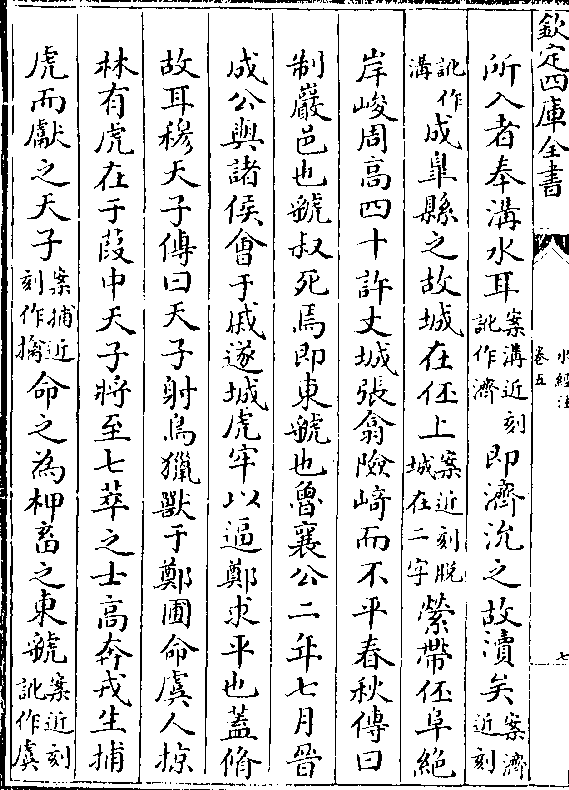 欽定四庫全書
水經注
卷五
七
所入者奉溝水耳案溝近刻訛作濟即濟沇之故瀆矣案濟近刻
訛作溝成臯縣之故城在伾上案近刻脫城在二字縈帶伾阜絶
岸峻周高四十許丈城張翕險崎而不平春秋傳曰
制巖邑也虢叔死焉即東虢也魯襄公二年七月晉
成公與諸侯會于戚遂城虎牢以逼鄭求平也蓋脩
故耳穆天子傳曰天子射鳥獵獸于鄭圃命虞人掠
林有虎在于葭中天子將至七萃之士高奔戎生捕
虎而獻之天子案捕近刻作擒命之為柙畜之東虢案近刻訛作虞